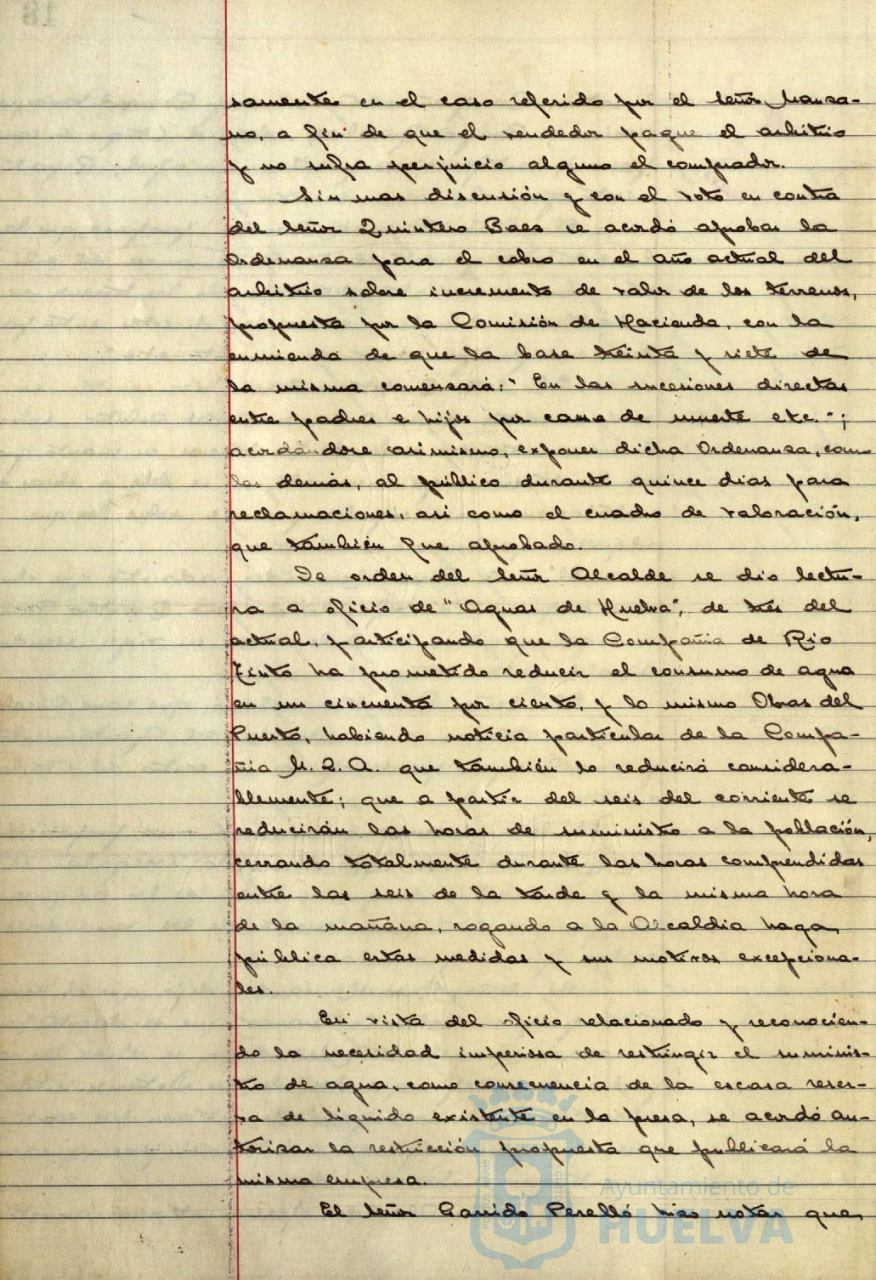 samente en el caso referido por el señor Manza-
no, a fin de que el vendedor pague el arbitrio
y no sufra perjuicio alguno el comprador.
Sin mas discusión y con el voto en contra
del señor Quintero Baez se acordó aprobar la
Ordenanza para el cobro en el año actual del
arbitrio sobre incremento de valor de los terrenos,
propuesta por la Comisión de Hacienda, con la
enmienda de que la base treinta y siete de
la misma comenzará: "En las sucesiones directas
entre padres e hijos por causa de muerte etc.";
acordándose asimismo, exponer dicha Ordenanza, como
las demás, al público durante quince dias para
reclamaciones, asi como el cuadro de valoración,
que también fue aprobado.
De orden del señor Alcalde se dio lectu-
ra a oficio de "Aguas de Huelva", de tres del
actual, participando que la Compañia de Rio
Tinto ha prometido reducir el consumo de agua
en un cincuenta por ciento, y lo mismo Obras del
Puerto, habiendo noticia particular de la Compa-
ñia M. Z. A. que también lo reducirá considera-
blemente; que a partir del seis del corriente se
reducirán las horas de suministro a la población,
cerrando totalmente durante las horas comprendidas
entre las seis de la tarde y la misma hora
de la mañana, rogando a la Alcaldia haga
pública estas medidas y sus motivos excepciona-
les.
En vista del oficio relacionado y reconocien-
do la necesidad imperiosa de restringir el suminis-
tro de agua, como consecuencia de la escasa reser-
va de líquido existente en la presa, se acordó au-
torizar la restricción propuesta que publicará la
misma empresa.
El señor Garrido Perelló hizo notar que,
Ayuntamiento de
HUELVA